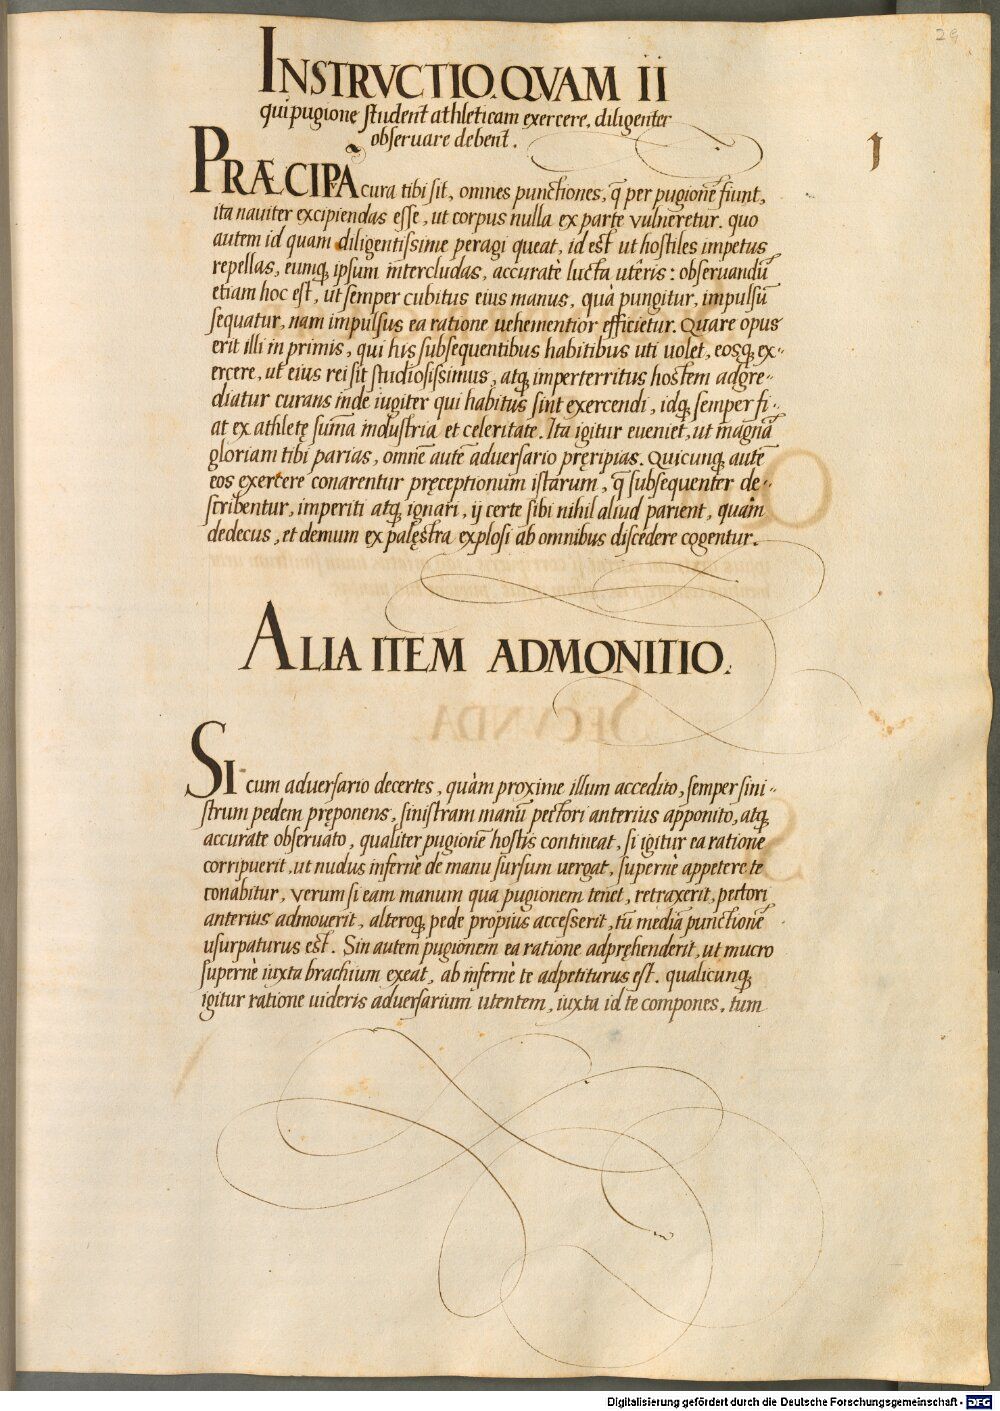 29
INSTRVCTIO.QVAM II
qui pugione student athleticam exercere, diligenter
obseruare debent.
1
PRÆCIPVÃ cura tibi sit, omnes punctiones, q̃ per pugionẽ fiunt,
ita nauiter excipiendas esse, ut corpus nulla ex parte vulneretur. quo
autem id quam diligentissime peragi queat, id est ut hostiles impetus
repellas, eumq; ipsum intercludas, accuratè lucta utêris: obseruandũ
etiam hoc est, ut semper cubitus eius manus, quà pungitur, impulsũ
sequatur, nam impulsus ea ratione uehementior efficietur. Quare opus
erit illi in primis, qui his subsequentibus habitibus uti uolet, eosq; ex-
ercere, ut eius rei sit studiosissimus, atq; imperterritus hostem adgre-
diatur curans inde iugiter qui habitus sint exercendi, idq; semper fi-
at ex athletę sum̃a industria et celeritate. Ita igitur eueniet, ut magnã
gloriam tibi parias, omnẽ autẽ aduersario pręripias. Quicunq; autẽ
eos exercere conarentur pręceptionum istarum, q̃ subsequenter de-
scribentur, imperiti atq; ignari, ij certe sibi nihil aliud parient, quàm
dedecus, et demum ex palęstra explosi ab omnibus discedere cogentur.
ALIA ITEM ADMONITIO.
SI cum aduersario decertes, quàm proxime illum accedito, semper sini-
strum pedem pręponens, sinistram manũ pectori anterius apponito, atq;
accurate obseruato, qualiter pugionẽ hostis contineat, si igitur ea ratione
corripuerit, ut nudus infernè de manu sursum uergat, supernè appetere te
conabitur, verum si eam manum qua pugionem tenet, retraxerit, pectori
anterius admouerit, alteroq; pede propius accesserit, tũ mediã punctionẽ
usurpaturus est. Sin autem pugionem ea ratione adpręhenderit, ut mucro
supernè iuxta brachium exeat, ab infernè te adpetiturus est. qualicunq;
igitur ratione uideris aduersarium utentem, iuxta id te compones, tum
Digitalisierung gefördert durch die Deutsche Forschungsgemeinschaft - DFG